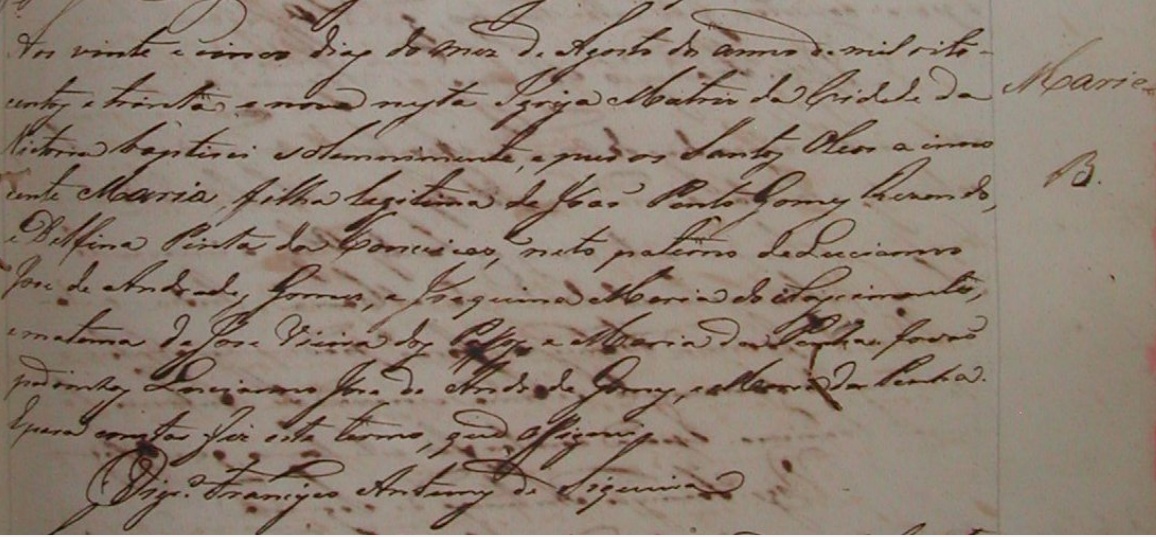 Aos vinte e cinco dias do mez de Agosto do anno de mil oito-
centos e trinta e nove nesta Igreja Matriz da Cidade da
Victoria baptisei solemnimente, e puz os Santos Oleos a inno
cente Maria, filha legitima de João Pinto Gomes Rezendo,
e Delfina Pinta da Conceicao, neto paterno de Lucianno
Jose de Andrade, Gomes, e Joaquina Maria do Nascimento,
e materna de Jose Vieira dos Passos e Maria da Penha: forão
padrinhos Lucianno Jose de Andrade Gomes, e Maria da Penha.
E para constar fiz este termo, que assignei,
Vigr.º Francisco Antunes de Siqueira
Maria
B.